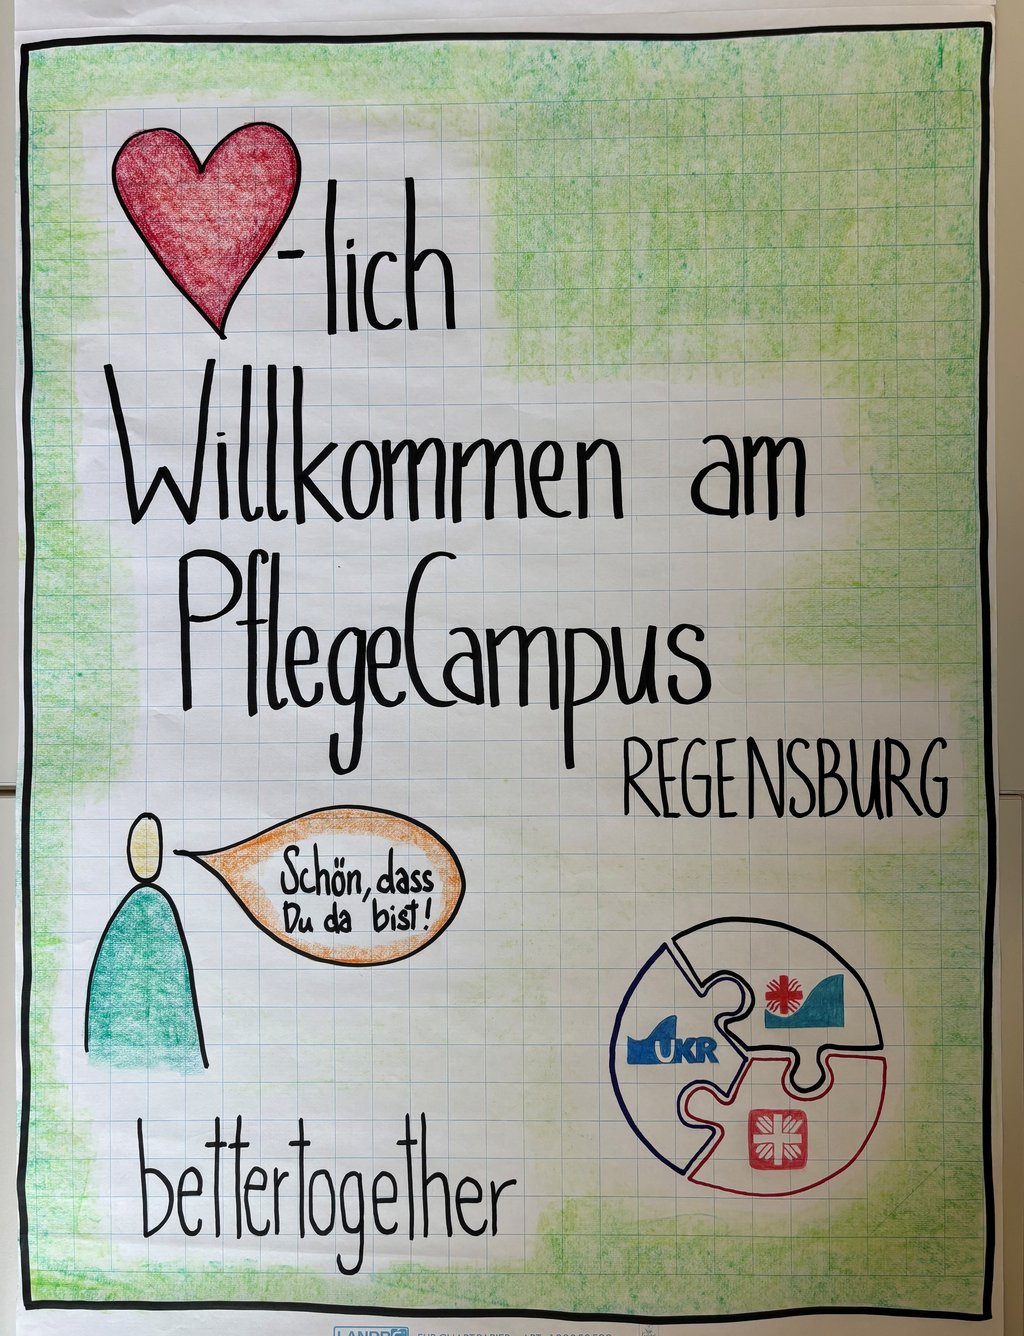 -lich
Willkommen am
PflegeCampus
REGENSBURG
Schön, dass
Du da bist!
UKR
bettertogether
LANDRÉ